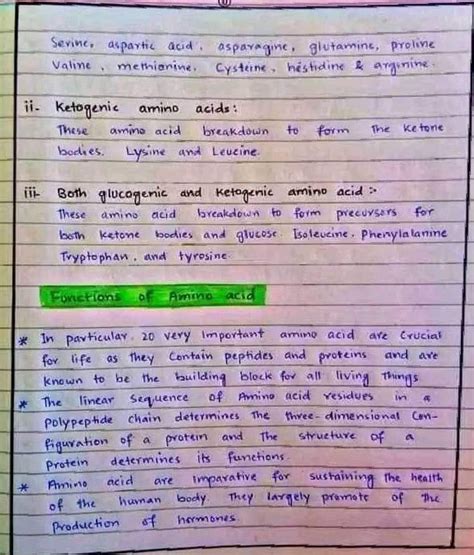 Serine, aspartic acid, asparagine, glutamine, proline
Valine, methionine, Cysteine, hestidine & arginine.
ii- Ketogenic amino acids:
These amino acid breakdown to form The Ketone
bodies. Lysine and Leucine.
iii- Both glucogenic and Ketogenic amino acid :-
These amino acid breakdown to form precursors for
both Ketone bodies and glucose. Isoleucine, Phenylalanine
Tryptophan, and tyrosine.
Functions of Amino acid
* In particular 20 very Important amino acid are Crucial
for life as They Contain peptides and proteins and are
known to be the building block for all living Things
* The linear Sequence of Amino acid residues in a
Polypeptide Chain determines The three-dimensional Con-
figuration of a protein and The structure of a
Protein determines its functions.
* Amino acid are imparative for sustaining the health
of the human body. They largely promote of the
Production of hormones.